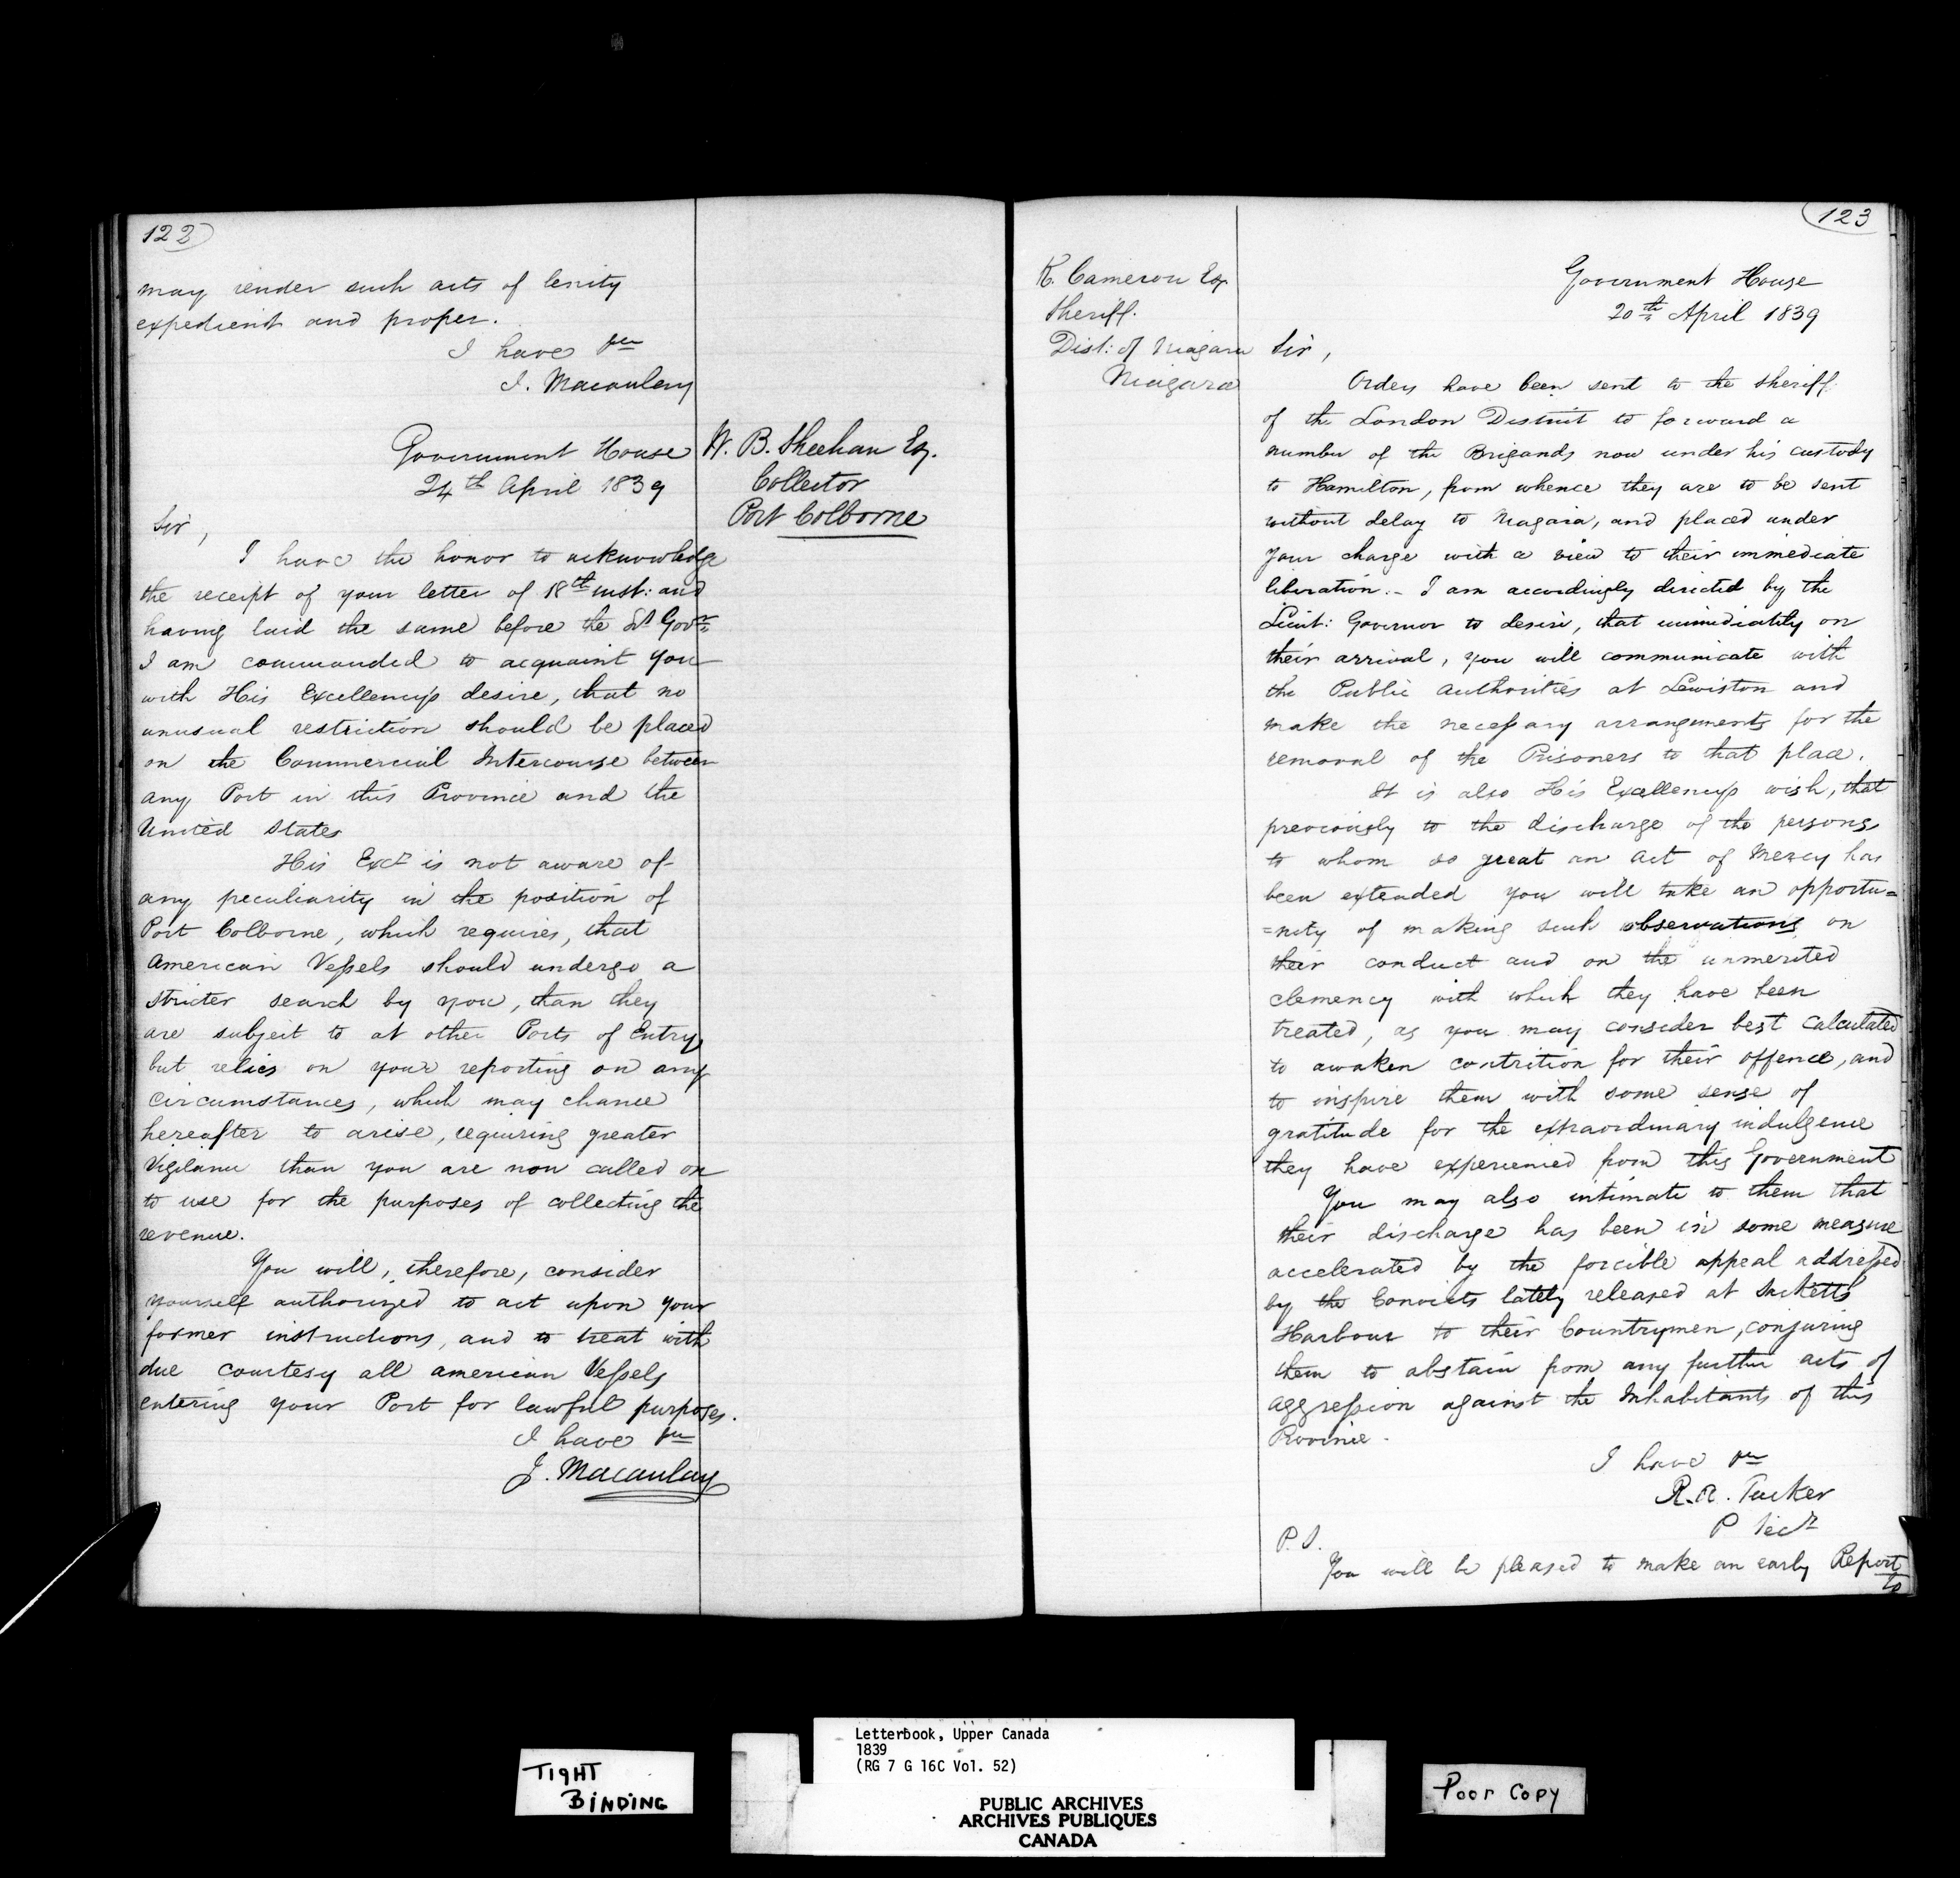 122
may render such acts of lenity
expedient and proper.
I have &c
J. Macaulay
Government House
24th April 1839
W. B. Sheehan Esq.
Collector
Port Colborne
Sir,
I have the honor to acknowledge
the receipt of your letter of 18th inst: and
having laid the same before the Lt Govr
I am commanded to acquaint you
with His Excellency's desire, that no
unusual restriction should be placed
on the Commercial Intercourse between
any Port in this Province and the
United States
His Excy is not aware of
any peculiarity in the position of
Port Colborne, which requires, that
American Vessels should undergo a
stricter search by you, than they
are subject to at other Ports of Entry,
but relies on your reporting on any
circumstances, which may chance
hereafter to arise, requiring greater
Vigilance than you are now called on
to use for the purposes of collecting the
revenue.
You will, therefore, consider
yourself authorized to act upon your
former instructions, and to treat with
due courtesy all american Vessels
entering your Port for lawful purposes.
I have &c
J. Macaulay
123
K. Cameron Esq
Sheriff.
Dist: of Niagara
Niagara
Government House
20th April 1839
Sir,
Orders have been sent to the Sheriff
of the London District to forward a
number of the Brigands now under his custody
to Hamilton, from whence they are to be sent
without delay to Niagara, and placed under
your charge with a view to their immediate
liberation.- I am accordingly directed by the
Lieut: Governor to desire, that immediately on
their arrival, you will communicate with
the Public Authorities at Lewiston and
make the necessary arrangements for the
removal of the Prisoners to that place.
It is also His Excellency's wish, that
previously to the discharge of the persons
to whom so great an Act of Mercy has
been extended you will take an opportu=
=nity of making such observations on
their conduct and on the unmerited
clemency with which they have been
treated, as you may consider best calculated
to awaken contrition for their offence, and
to inspire them with some sense of
gratitude for the extraordinary indulgence
they have experienced from this Government
You may also intimate to them that
their discharge has been in some measure
accelerated by the forcible appeal addressed
by the Convicts lately released at Sacketts
Harbour to their Countrymen, conjuring
them to abstain from any further acts of
aggression against the Inhabitants of this
Province.
I have &c
R. A. Tucker
P Secy
P.S.
You will be pleased to make an early Report
to
TIGHT
BINDING
Letterbook, Upper Canada
1839
(RG 7 G 16C Vol. 52)
PUBLIC ARCHIVES
ARCHIVES PUBLIQUES
CANADA
Poor Copy